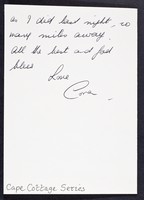 as I did last night, so
many miles away.
All the best and God
bless
Love
Cape Cottage Series